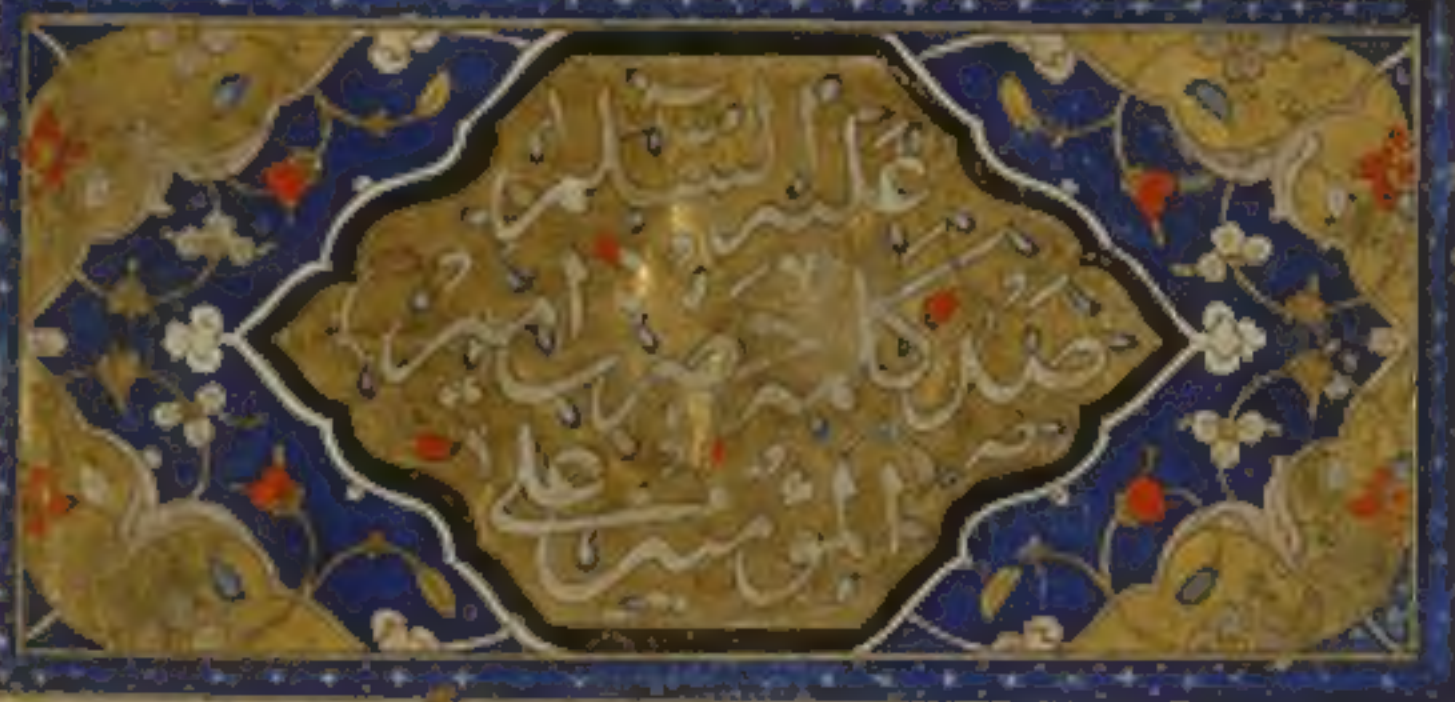 عليه السلام
صد كلمه حضرت امير
المؤمنين علي